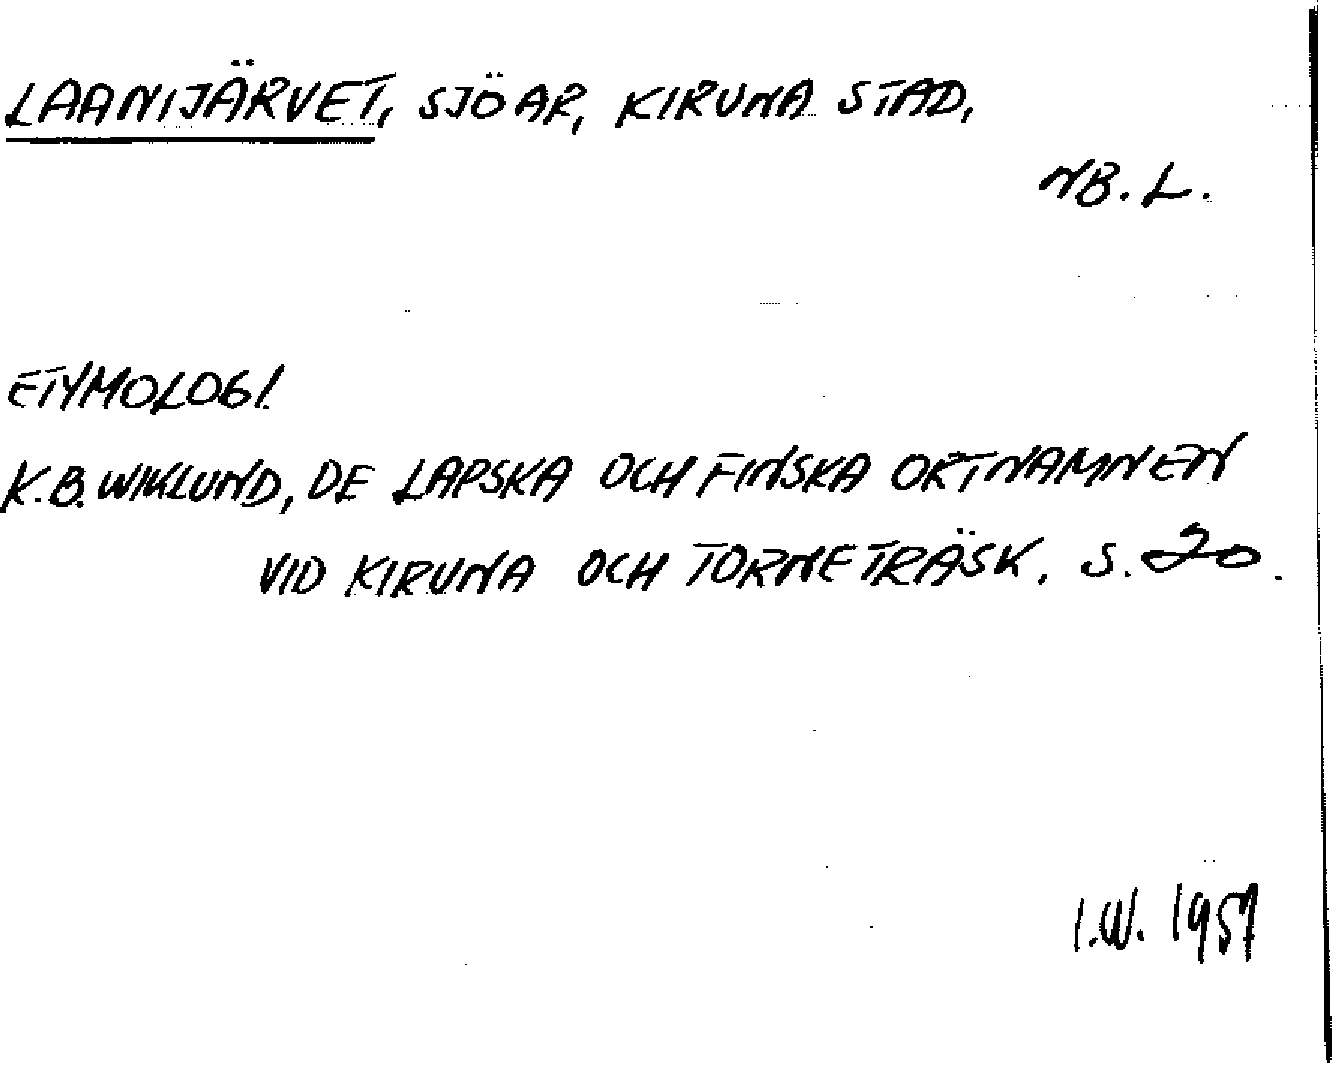 LAANIJÄRVET, SJÖAR, KIRUNA STAD,
NB. L.
ETYMOLOGI.
K.B. WIKLUND, DE LAPSKA OCH FINSKA ORTNAMNEN
VID KIRUNA OCH TORNETRÄSK. S. 20.
I.W. 1957